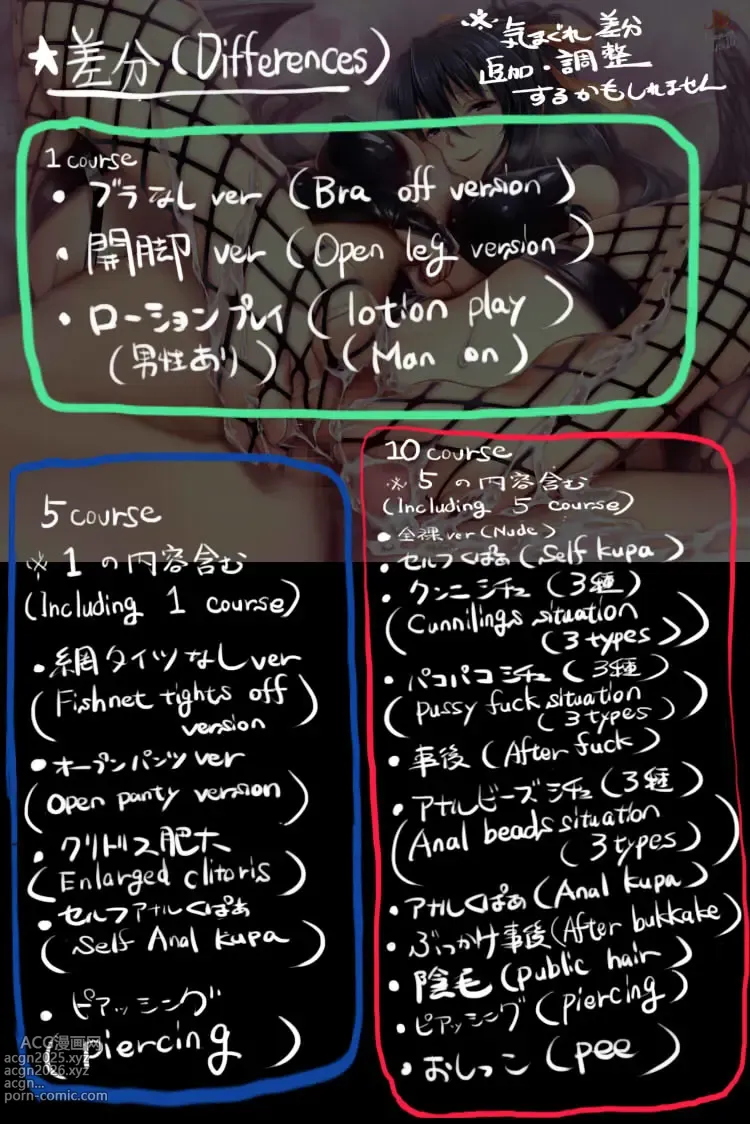 ★差分(Differences)
※気まぐれ差分
追加・調整
するかもしれません
1 course
・ブラなし ver (Bra off version)
・開脚 ver (Open leg version)
・ローションプレイ (lotion play)
(男性あり) (Man on)
5 course
※1の内容含む
(Including 1 course)
・網タイツなし ver
(Fishnet tights off
version)
・オープンパンツ ver
(Open panty version)
・クリトリス肥大
(Enlarged clitoris)
・セルフアナルくぱぁ
(Self Anal kupa)
・ピアッシング
(piercing)
10 course
※5の内容含む
(Including 5 course)
・全裸 ver (Nude)
・セルフくぱぁ (Self kupa)
・クンニシチュ (3種)
(Cunnilings situation
(3 types))
・パコパコシチュ (3種)
(pussy fuck situation
(3 types))
・事後 (After fuck)
・アナルビーズシチュ (3種)
(Anal beads situation
(3 types))
・アナルくぱぁ (Anal kupa)
・ぶっかけ事後 (After bukkake)
・陰毛 (public hair)
・ピアッシング (piercing)
・おしっこ (pee)
ACG漫画网
acgn2025.xyz
acgn2026.xyz
acgn...
porn-comic.com